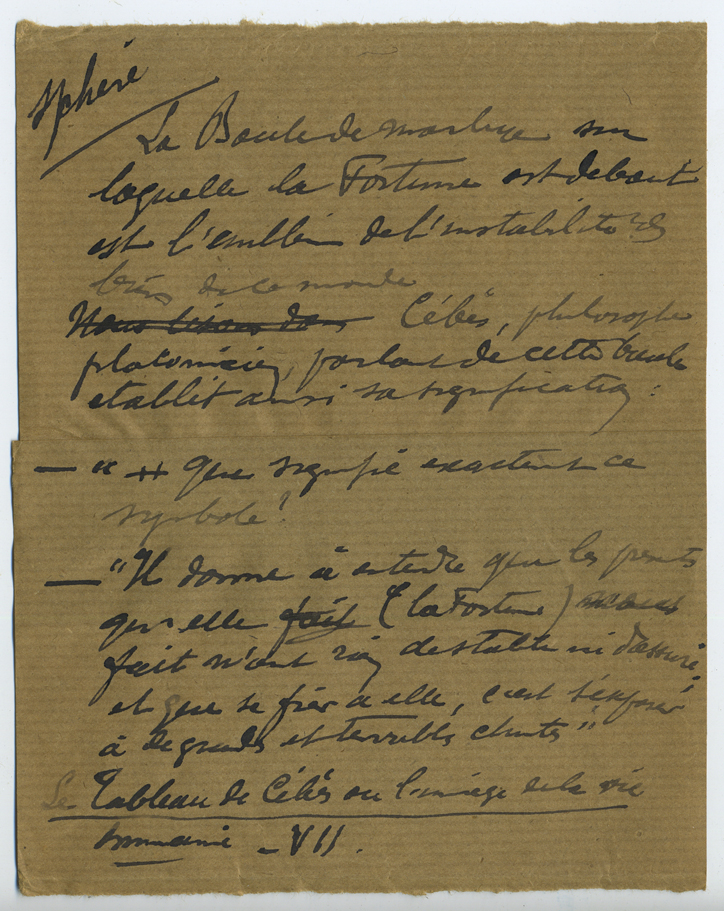 Sphère
La Boule de marbre sur
laquelle la Fortune est debout
est l'emblème de l'instabilité des
biens de ce monde
Nous lisons dans Cébès, philosophe
platonicien, parlant de cette boule
établit ainsi sa signification :
— " que signifie exactement ce
symbole ?
— "Il donne à entendre que les présents
qu'elle fait (la Fortune) nous
fait n'ont rien de stable ni d'assuré,
et que se fier à elle, c'est s'exposer
à de grandes et terribles chutes"
Le Tableau de Cébès ou l'image de la vie
humaine - VII.